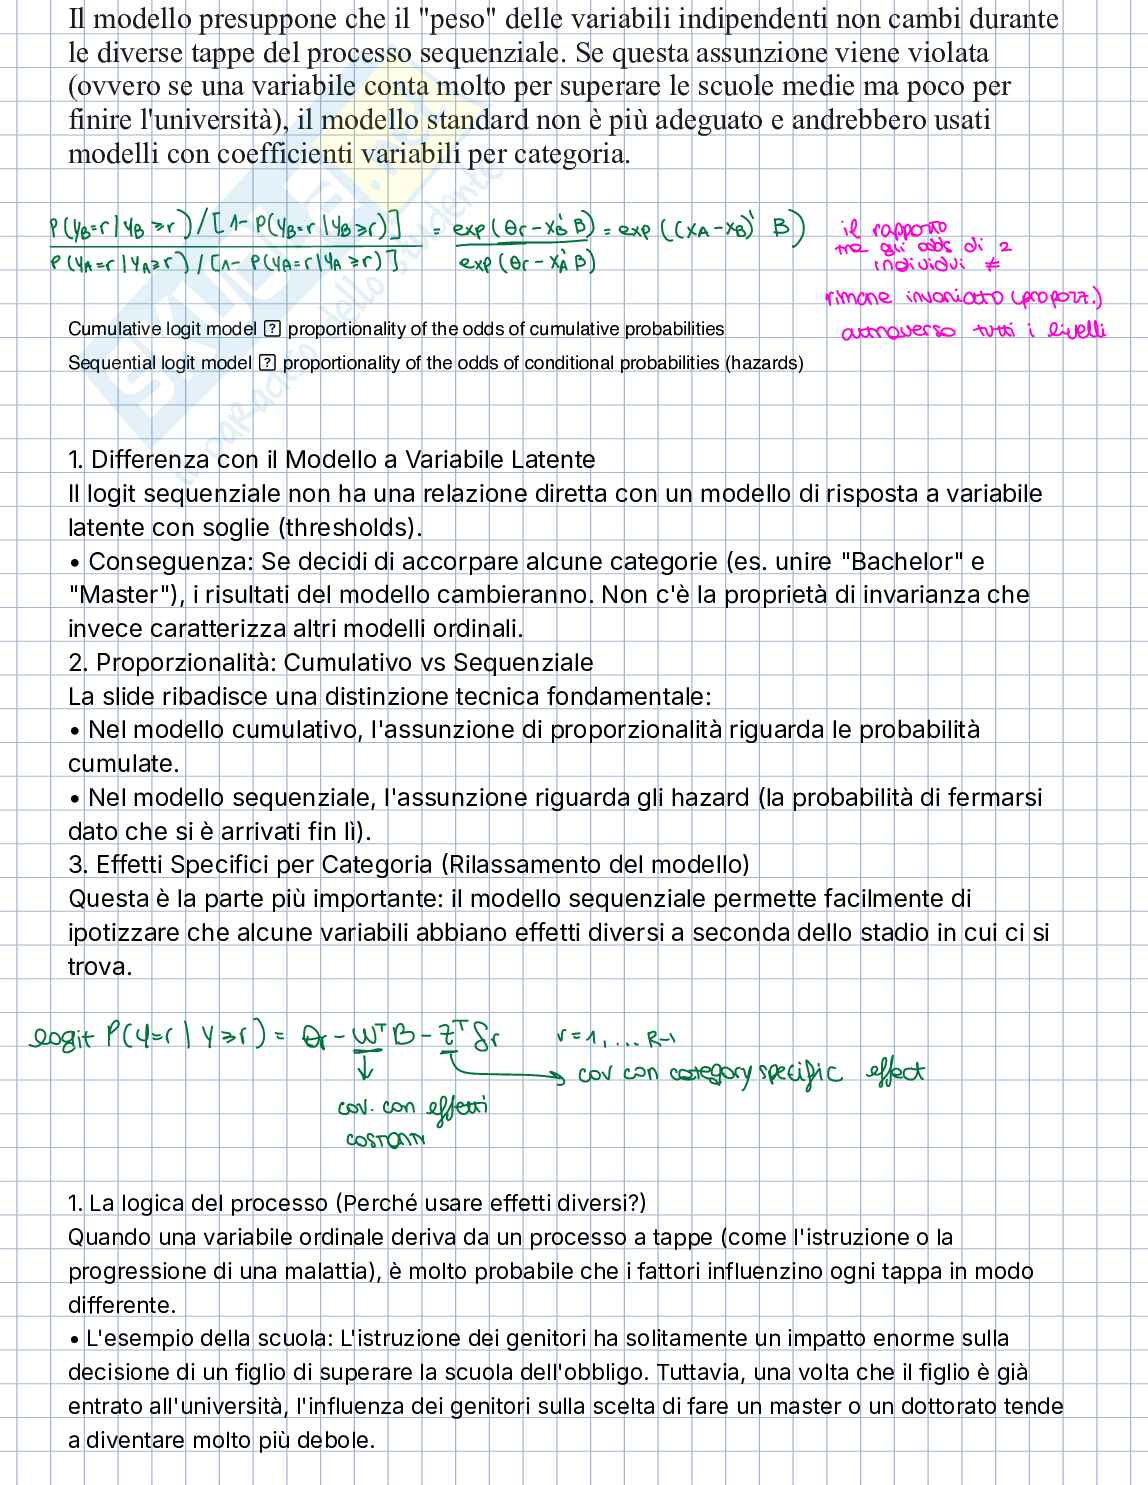 Il modello presuppone che il "peso" delle variabili indipendenti non cambi durante
le diverse tappe del processo sequenziale. Se questa assunzione viene violata
(ovvero se una variabile conta molto per superare le scuole medie ma poco per
finire l'università), il modello standard non è più adeguato e andrebbero usati
modelli con coefficienti variabili per categoria.
P(y_B=r | y_B ≥ r) / [1 - P(y_B=r | y_B ≥ r)] = exp(θr - x'_B B) = exp((x_A - x_B)' B) il rapporto
P(y_A=r | y_A ≥ r) / [1 - P(y_A=r | y_A ≥ r)] exp(θr - x'_A B) tra gli odds di 2
individui ≠
rimane invariato (proporz.)
attraverso tutti i livelli
Cumulative logit model ? proportionality of the odds of cumulative probabilities
Sequential logit model ? proportionality of the odds of conditional probabilities (hazards)
1. Differenza con il Modello a Variabile Latente
Il logit sequenziale non ha una relazione diretta con un modello di risposta a variabile
latente con soglie (thresholds).
• Conseguenza: Se decidi di accorpare alcune categorie (es. unire "Bachelor" e
"Master"), i risultati del modello cambieranno. Non c'è la proprietà di invarianza che
invece caratterizza altri modelli ordinali.
2. Proporzionalità: Cumulativo vs Sequenziale
La slide ribadisce una distinzione tecnica fondamentale:
• Nel modello cumulativo, l'assunzione di proporzionalità riguarda le probabilità
cumulate.
• Nel modello sequenziale, l'assunzione riguarda gli hazard (la probabilità di fermarsi
dato che si è arrivati fin lì).
3. Effetti Specifici per Categoria (Rilassamento del modello)
Questa è la parte più importante: il modello sequenziale permette facilmente di
ipotizzare che alcune variabili abbiano effetti diversi a seconda dello stadio in cui ci si
trova.
logit P(Y=r | Y≥r) = θr - W^T B - Z^T δr r = 1, ... R-1
cov con category specific effect
cov. con effetti
costanti
1. La logica del processo (Perché usare effetti diversi?)
Quando una variabile ordinale deriva da un processo a tappe (come l'istruzione o la
progressione di una malattia), è molto probabile che i fattori influenzino ogni tappa in modo
differente.
• L'esempio della scuola: L'istruzione dei genitori ha solitamente un impatto enorme sulla
decisione di un figlio di superare la scuola dell'obbligo. Tuttavia, una volta che il figlio è già
entrato all'università, l'influenza dei genitori sulla scelta di fare un master o un dottorato tende
a diventare molto più debole.